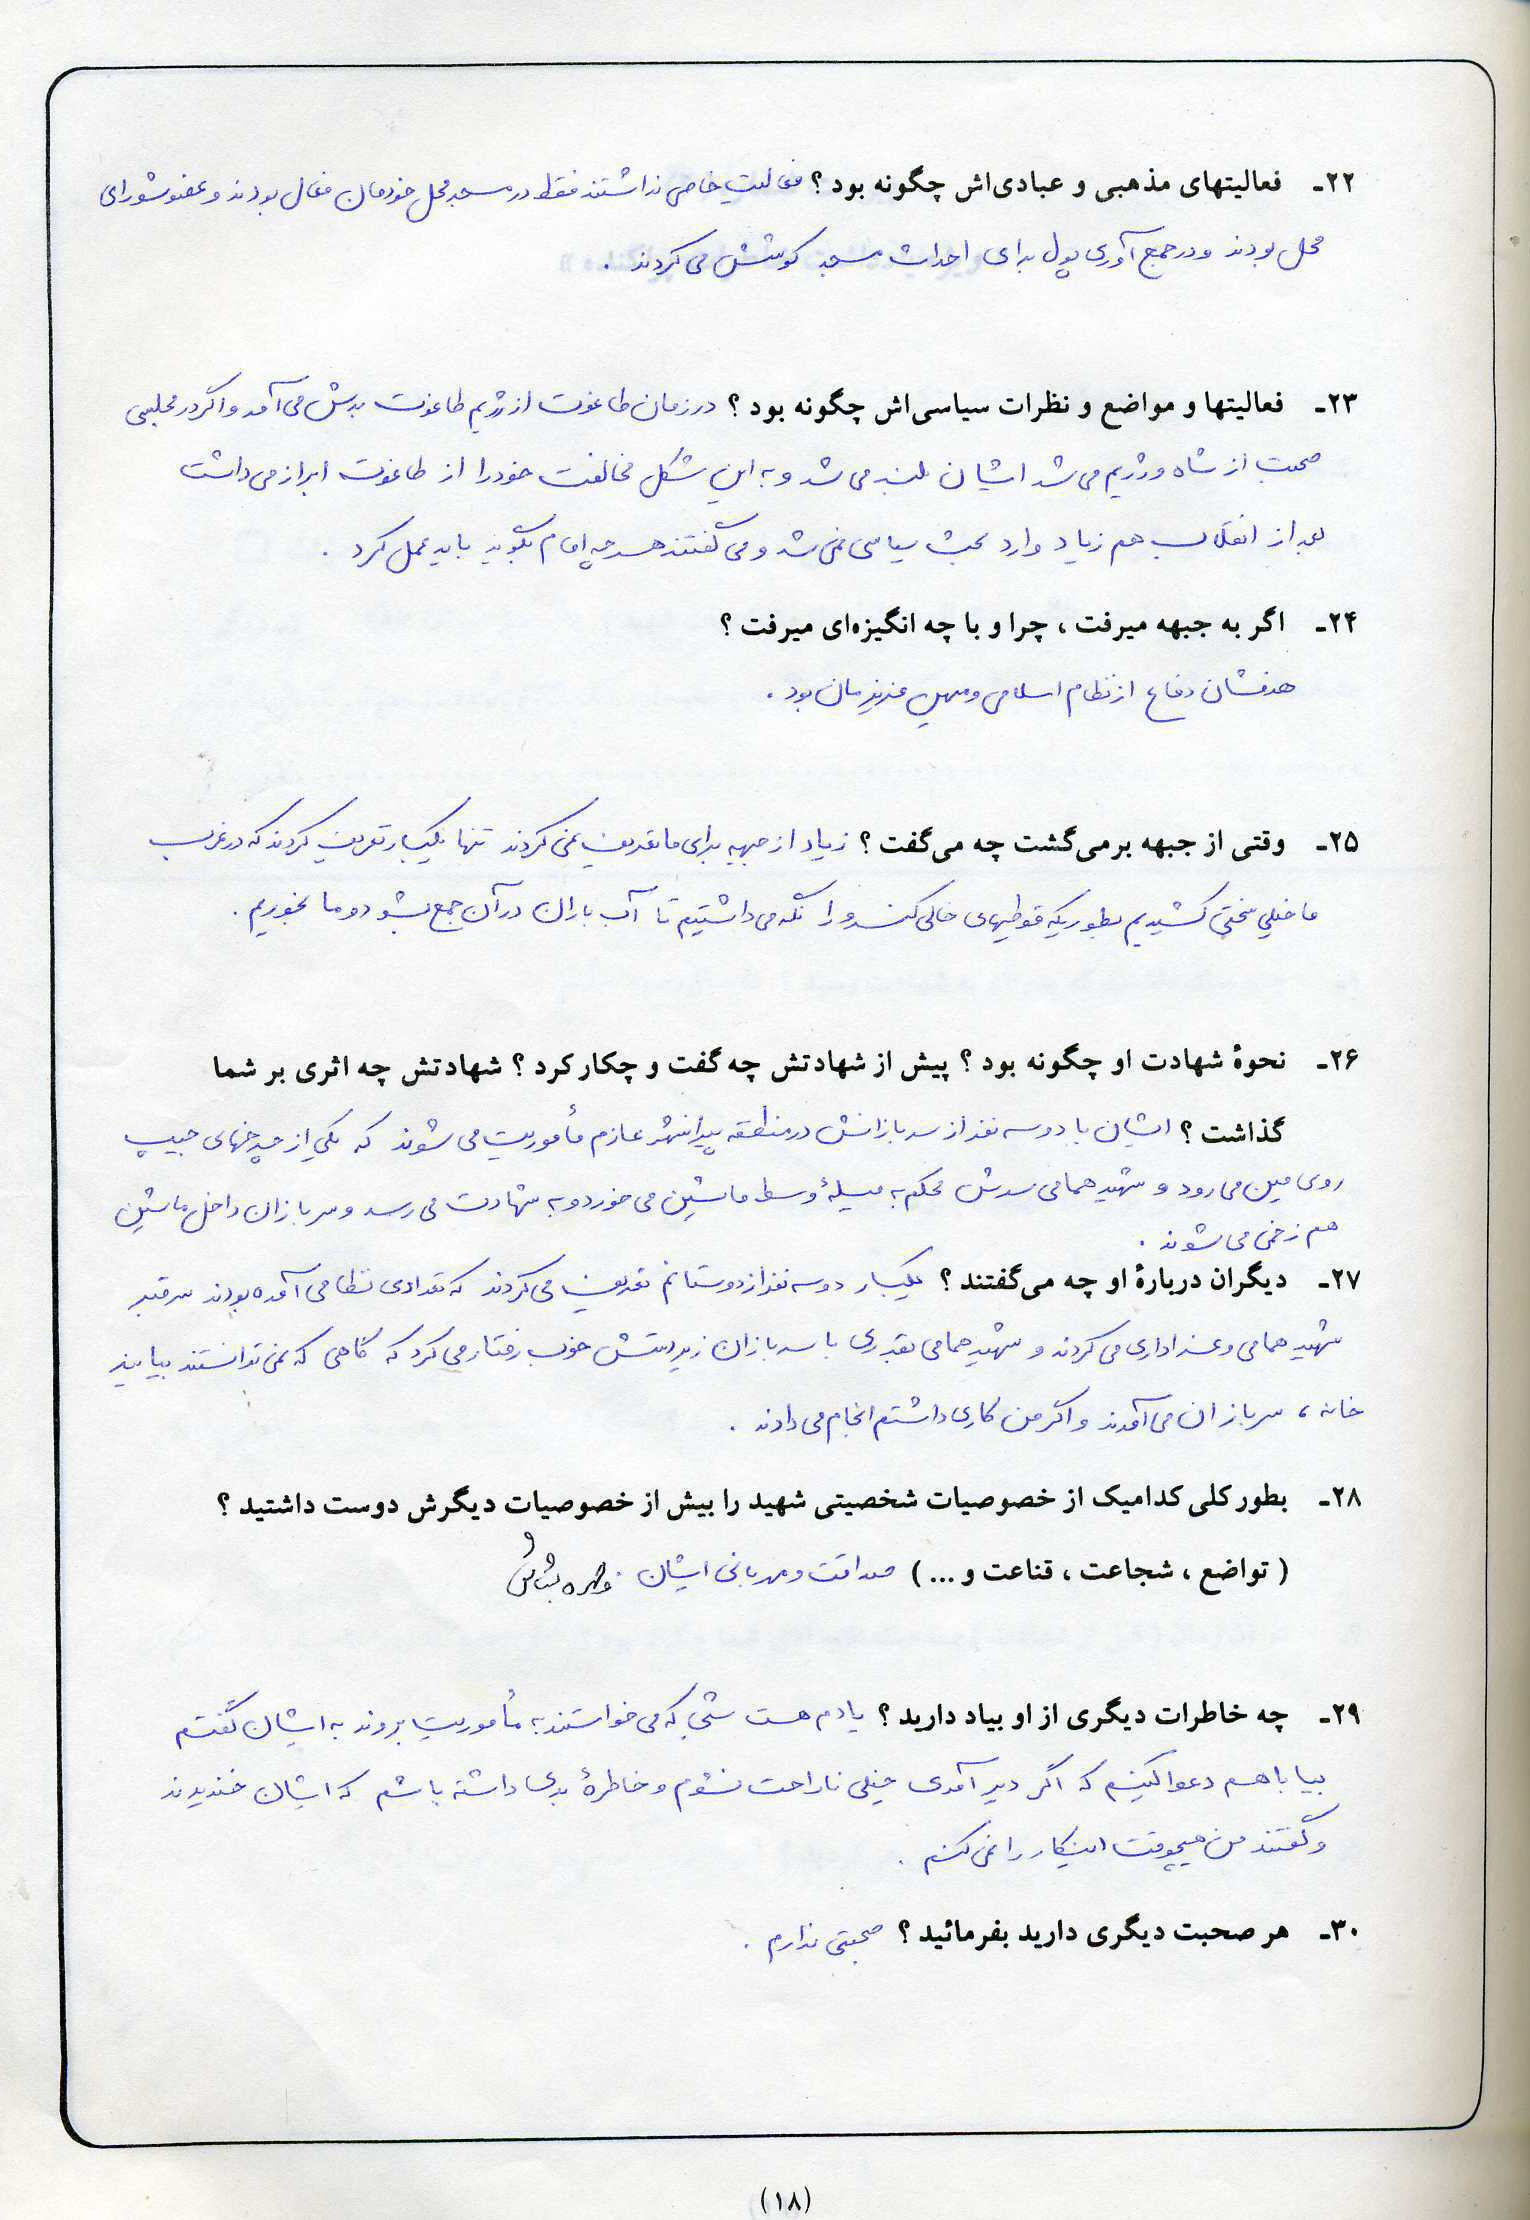 ۲۲ـ فعالیتهای مذهبی و عبادی‌اش چگونه بود ؟ فعالیت خاصی نداشتند فقط در مسجد محل خودمان فعال بودند و عضو شورای
محل بودند و در جمع آوری پول برای احداث مسجد کوشش می کردند .
۲۳ـ فعالیتها و مواضع و نظرات سیاسی‌اش چگونه بود ؟ در زمان طاغوت از رژیم طاغوت بدش می آمد و اگر در مجلسی
صحبت از شاه و رژیم می شد ایشان بلند می شد و به این شکل مخالفت خود را از طاغوت ابراز می داشت
بعد از انقلاب هم زیاد وارد بحث سیاسی نمی شد و می گفتند هر چه امام بگوید باید عمل کرد .
۲۴ـ اگر به جبهه میرفت ، چرا و با چه انگیزه‌ای میرفت ؟
هدفشان دفاع از نظام اسلامی و میهن عزیزمان بود .
۲۵ـ وقتی از جبهه برمی‌گشت چه می‌گفت ؟ زیاد از جبهه برای ما تعریف نمی کردند تنها یکبار تعریف کردند که در غرب
ما خیلی سختی کشیدیم بطوریکه قوطیهای خالی کنسرو را نگه می داشتیم تا آب باران در آن جمع بشود و ما بخوریم .
۲۶ـ نحوهٔ شهادت او چگونه بود ؟ پیش از شهادتش چه گفت و چکار کرد ؟ شهادتش چه اثری بر شما
گذاشت ؟ ایشان با دو سه نفر از سربازانش در منطقه پیرانشهر عازم مأموریت می شوند که یکی از چرخهای جیپ
روی مین می رود و شهید همامی سرش محکم به میلهٔ وسط ماشین می خورد و به شهادت می رسد و سربازان داخل ماشین
هم زخمی می شوند .
۲۷ـ دیگران دربارهٔ او چه می‌گفتند ؟ یکبار دو سه نفر از دوستانم تعریف می کردند که تعدادی نظامی آمده بودند سر قبر
شهید همامی و عزاداری می کردند و شهید همامی بقدری با سربازان زیردستش خوب رفتار می کرد که گاهی که نمی توانستند بیایند
خانه ، سربازان می آمدند و اگر من کاری داشتم انجام می دادند .
۲۸ـ بطور کلی کدامیک از خصوصیات شخصیتی شهید را بیش از خصوصیات دیگرش دوست داشتید ؟
( تواضع ، شجاعت ، قناعت و ... ) صداقت و مهربانی ایشان . و چهره بشاش
۲۹ـ چه خاطرات دیگری از او بیاد دارید ؟ یادم هست شبی که می خواستند به مأموریت بروند به ایشان گفتم
بیا با هم دعوا کنیم که اگر دیر آمدی خیلی ناراحت نشوم و خاطرهٔ بدی داشته باشم که ایشان خندیدند
و گفتند من هیچوقت اینکار را نمی کنم .
۳۰ـ هر صحبت دیگری دارید بفرمائید ؟ صحبتی ندارم .
(۱۸)